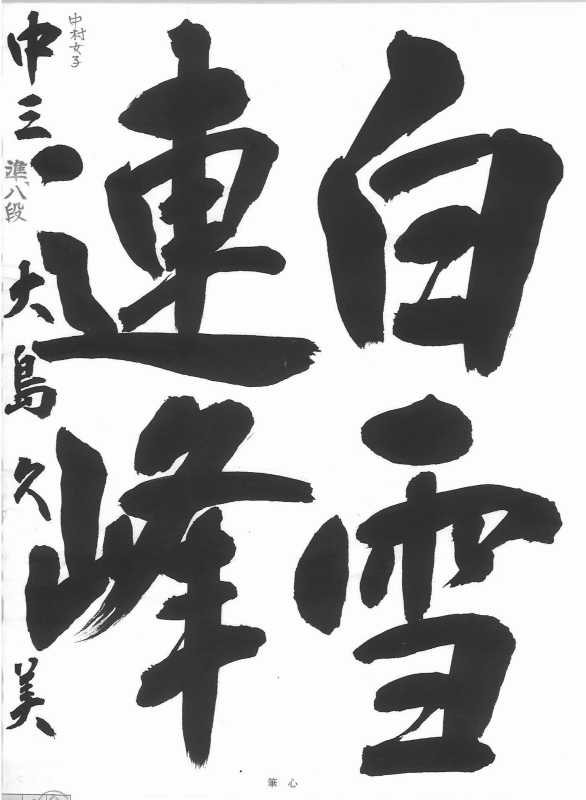 白雪
連峰
中三 大島久美
準八段
中村女子
心筆